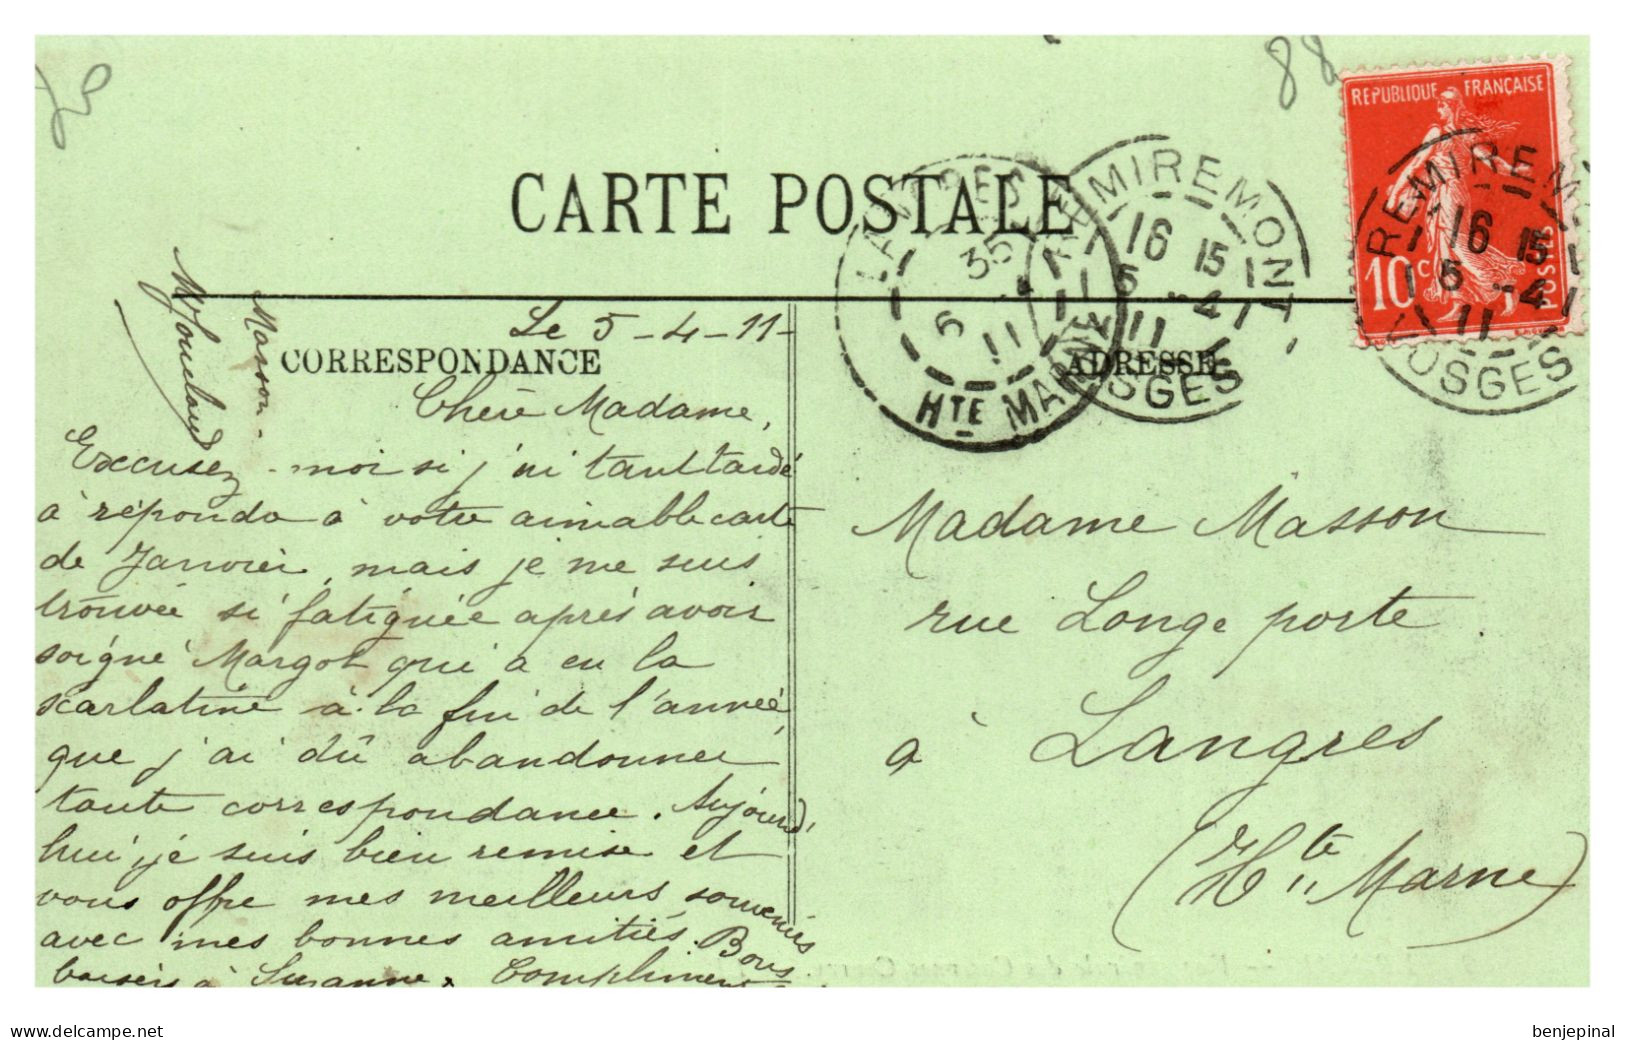 88
RÉPUBLIQUE FRANÇAISE
10 c
POSTES
REMIREMONT
16 15
5 -4
11
VOSGES
REMIREMONT
16 15
5 -4
11
VOSGES
LANGRES
35
5
11
HTE MARNE
CARTE POSTALE
CORRESPONDANCE
ADRESSE
Le 5-4-11-
Chère Madame,
Excusez-moi si j'ai tant tardé
à répondre à votre aimable carte
de Janvier, mais je me suis
trouvée si fatiguée après avoir
soigné Margot qui a eu la
scarlatine à la fin de l'année,
que j'ai dû abandonner
toute correspondance. Aujourd'
hui, je suis bien remise et
vous offre mes meilleurs souvenirs
avec mes bonnes amitiés. Bons
baisers à Suzanne. Compliment
Masson.
Madame Masson
rue Longe porte
à Langres
(Hte Marne)
www.delcampe.net
benjepinal